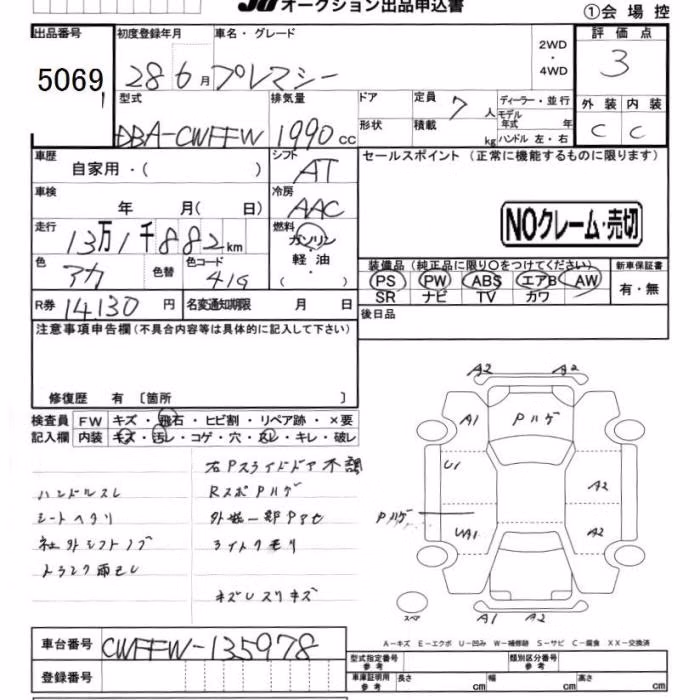 JU オークション出品申込書
①会場控
出品番号 初度登録年月 車名・グレード 2WD・4WD 評価点
5069 28年6月 プレマシー 3
型式 排気量 ドア 定員 7人 ディーラー・並行 外装 内装
DBA-CWFFW 1990cc 形状 積載 kg モデル年式 年 ハンドル 左・右 C C
車歴 自家用・( ) シフト AT セールスポイント (正常に機能するものに限ります)
車検 年 月( 日) 冷房 AAC
NOクレーム・売切
走行 13万1千882km 燃料 ガソリン・軽油・( )
色 アカ 色替 色コード 41G
装備品(純正品に限り○をつけてください) 新車保証書
PS PW ABS エアB AW 有・無
SR ナビ TV カワ
R券 14,130円 名変通知期限 月 日
後日品
注意事項申告欄(不具合内容等は具体的に記入して下さい)
修復歴 有 〔箇所 〕
検査員記入欄 FW キズ・飛石・ヒビ割・リペア跡・×要
内装 キズ・汚レ・コゲ・穴・スレ・キレ・破レ
右Pスライドドア不調
ハンドルスレ RスポPハゲ
シートヘタリ 外装一部Pアセ
社外シフトノブ ライトクモリ
トランク雨ヨレ
キズレスリキズ
A2 A2
A1 Pハゲ
U1 A2
Pハゲ
UA1 A2
スペア A1 A2
A-キズ E-エクボ U-凹み W-補修跡 S-サビ C-腐食 XX-交換済
車台番号 CWFFW-135978
型式指定番号 参考 類別区分番号 参考
登録番号 車庫証明用 参考 長さ cm 幅 cm 高さ cm